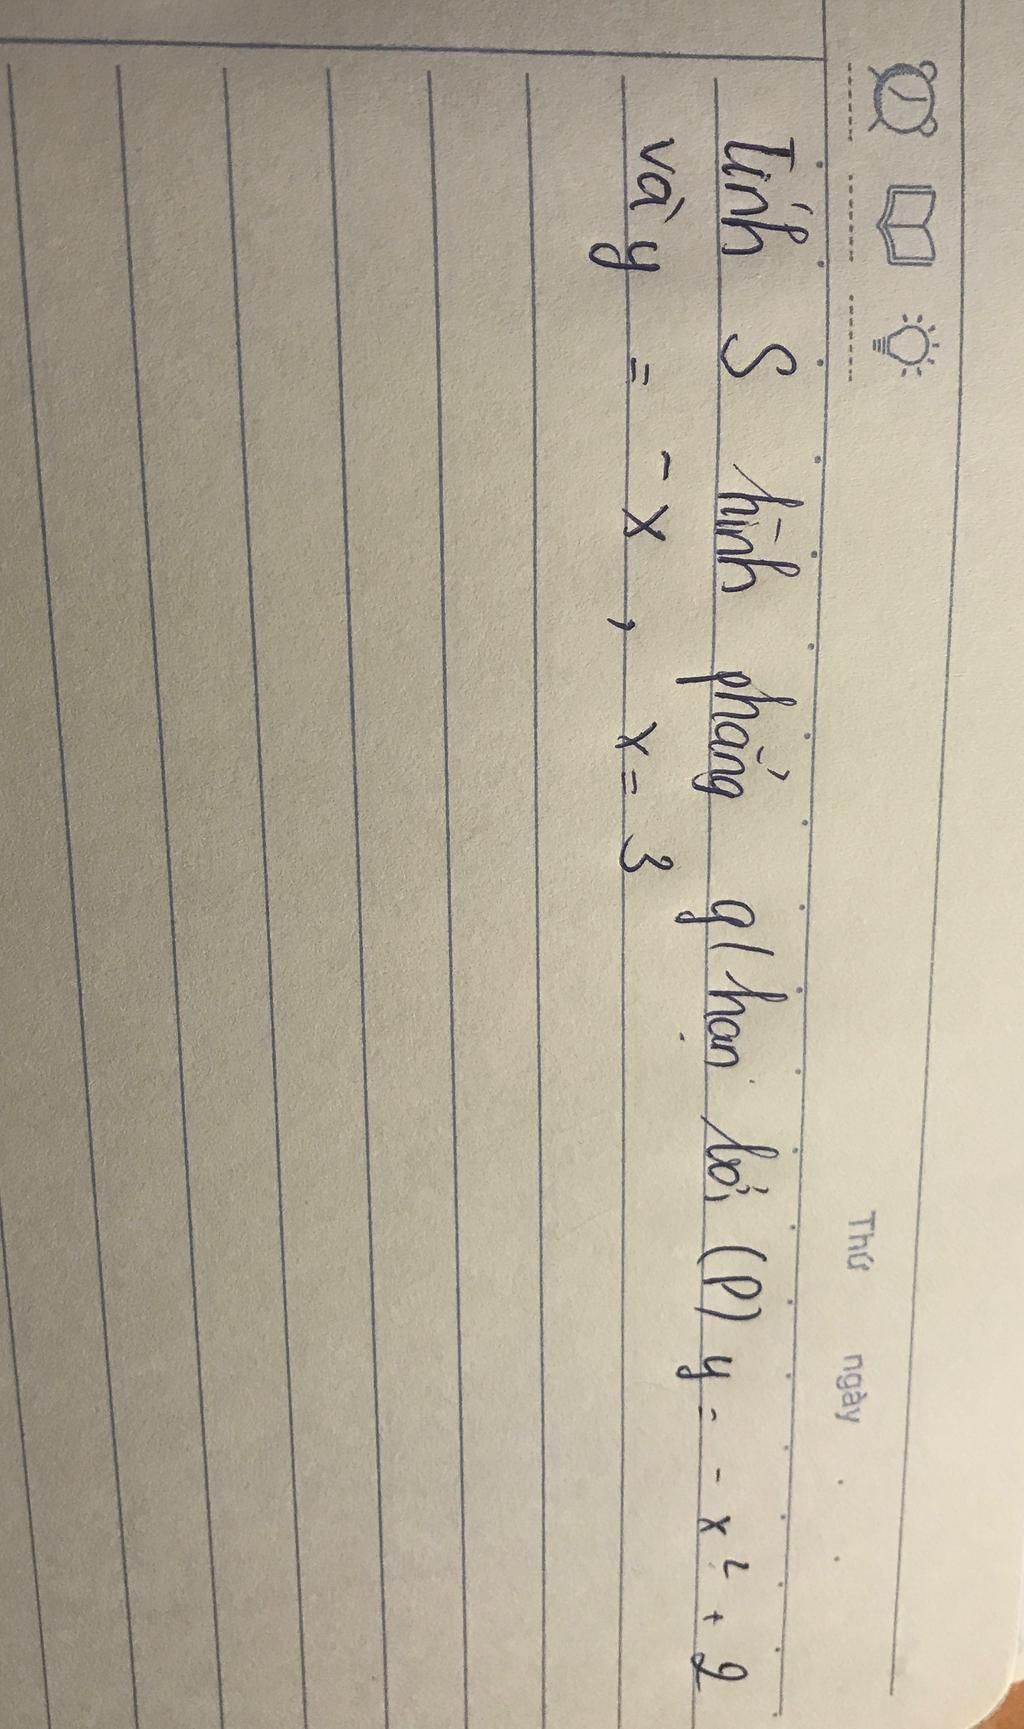 Thứ ngày
Tính S hình phẳng g/hạn bởi (P) y = - x² + 2
và y = -x , x = 3